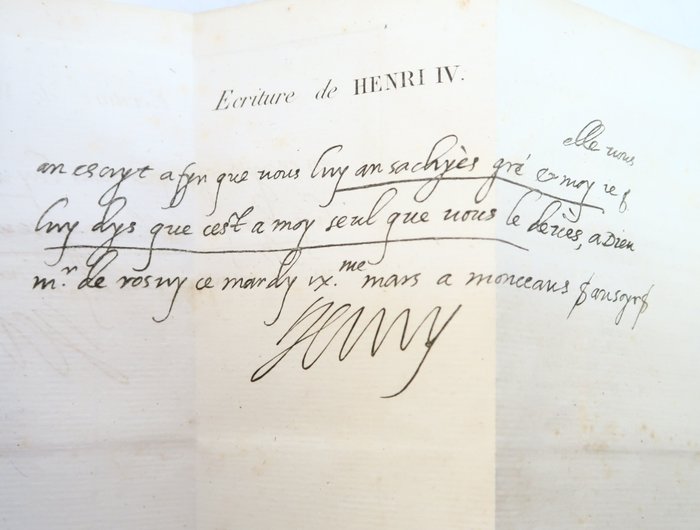 Ecriture de HENRI IV.
elle vous
an escryt afyn que vous luy an sachyès gré et moy ie
luy dys que cest a moy seul que vous le devès, a Dieu
mr. de rosny ce mardy ix.me mars a monceaus
Henry